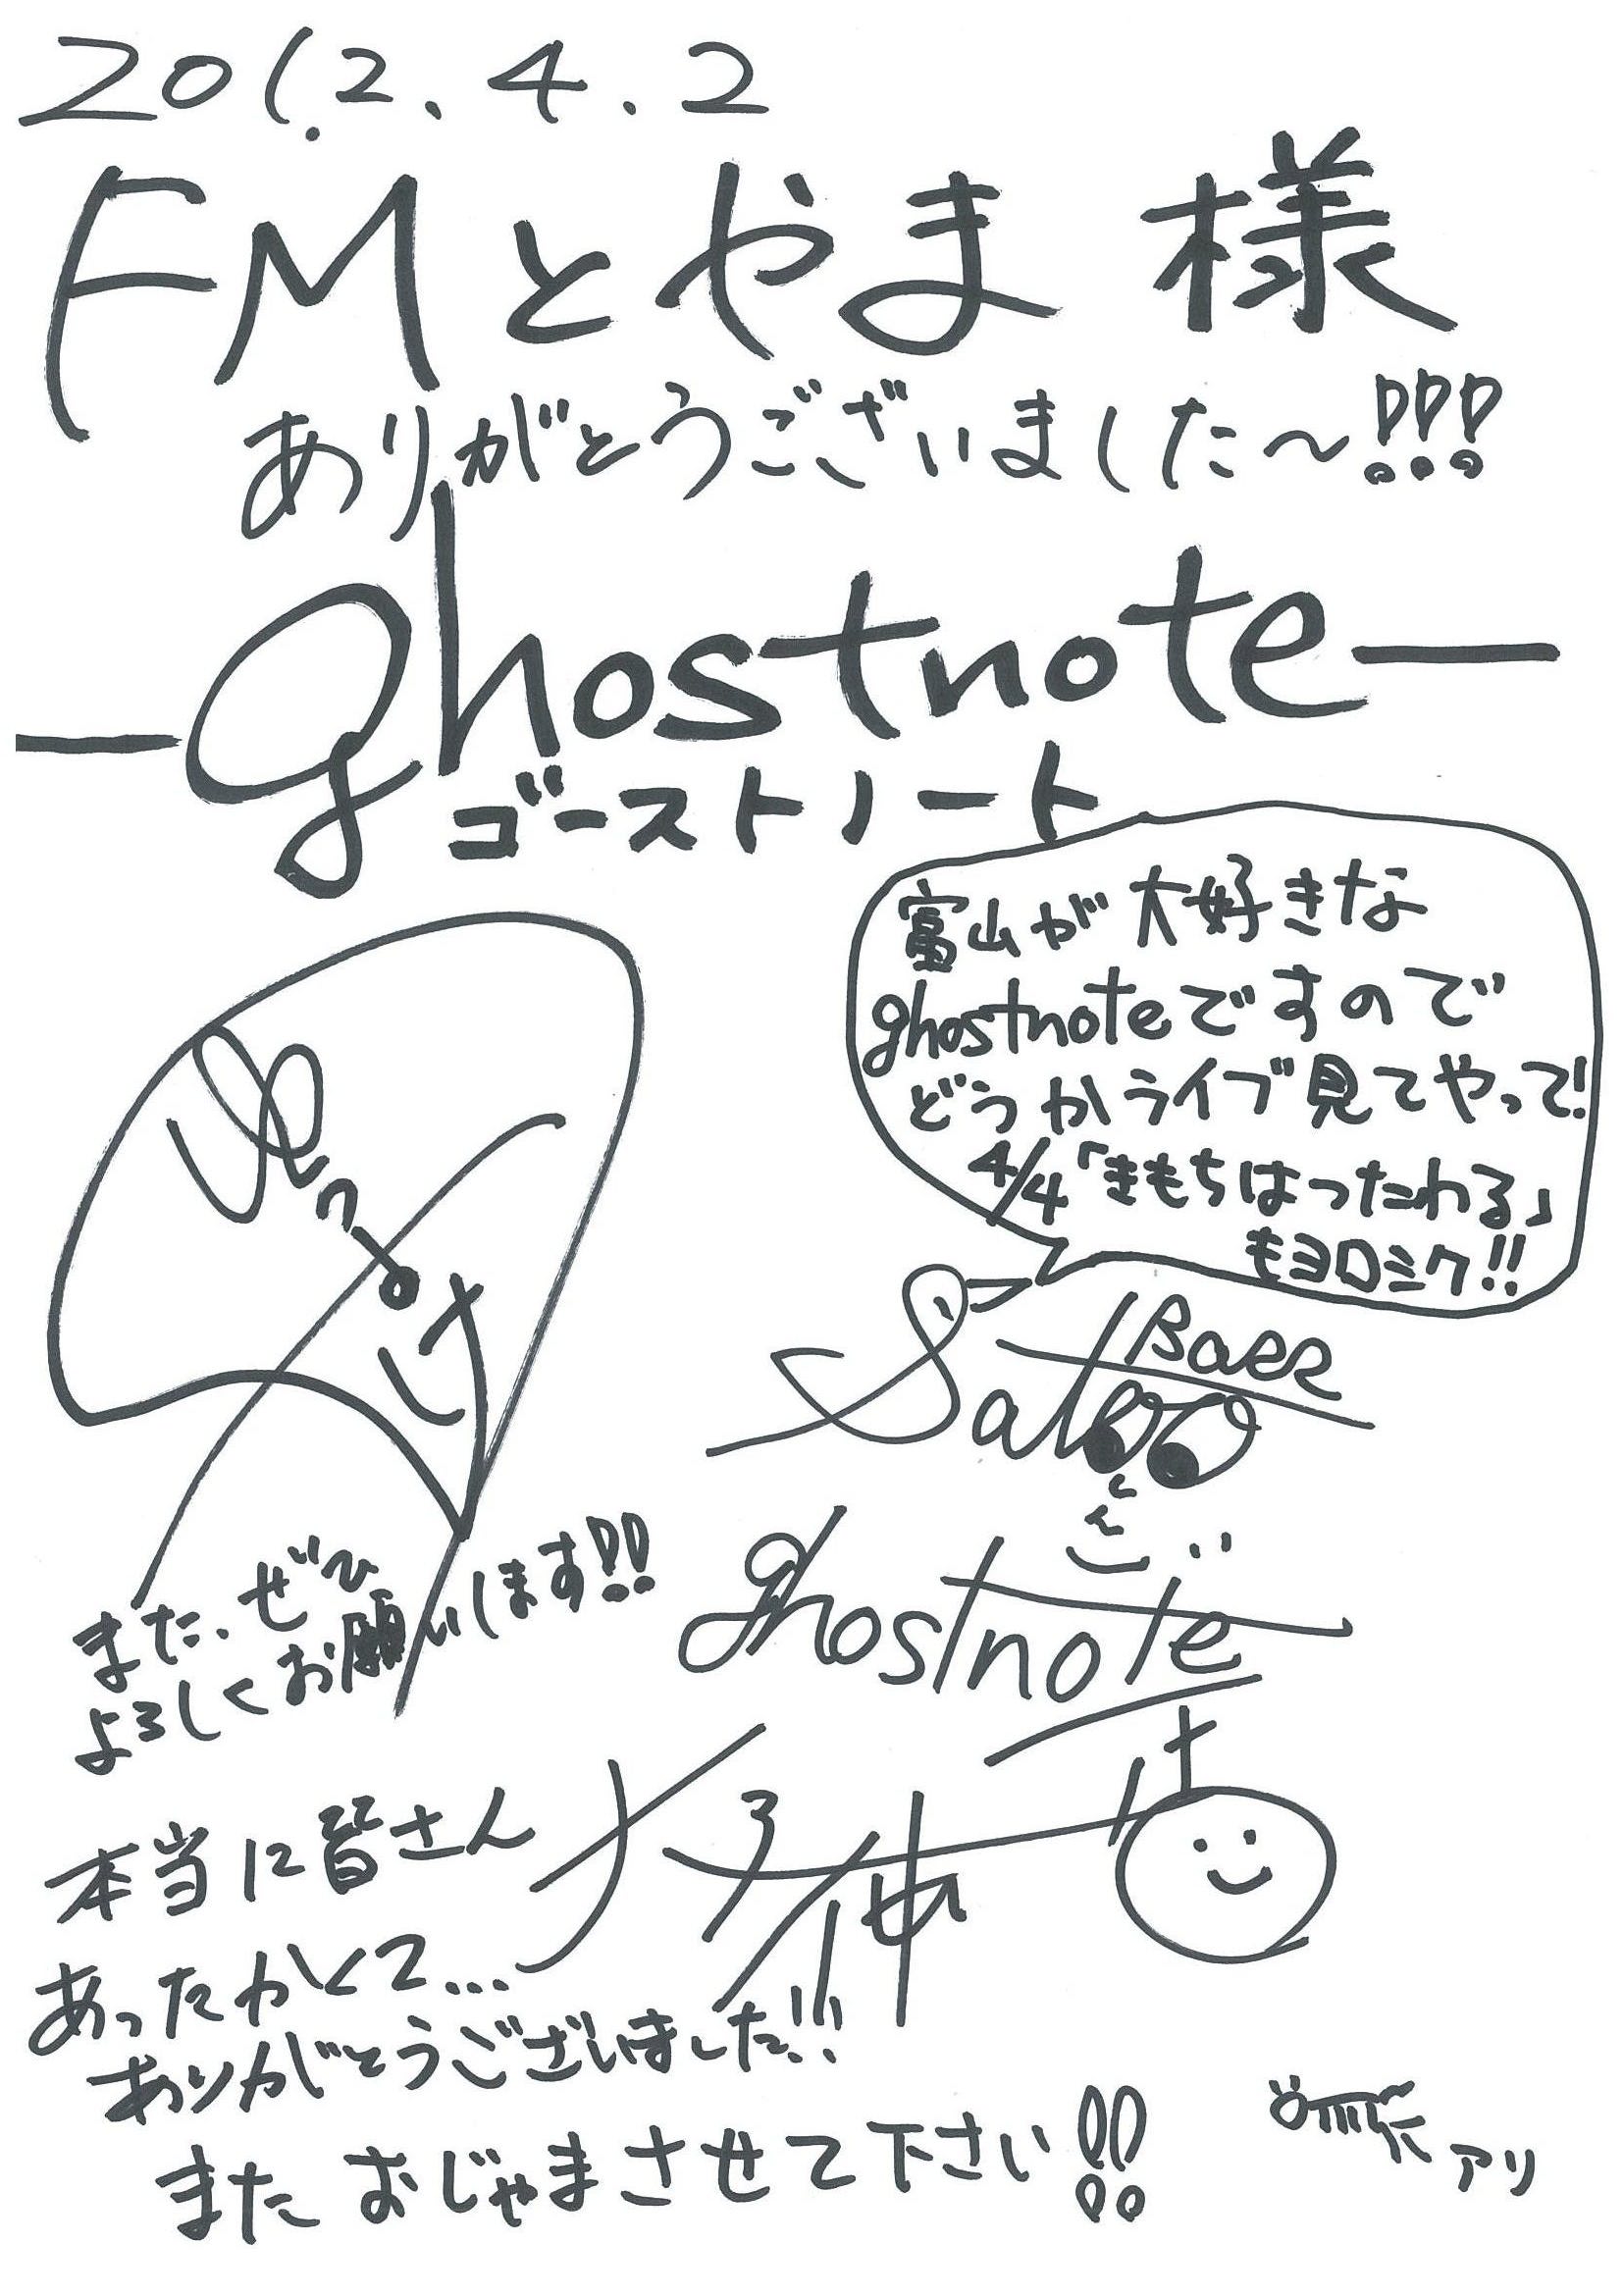 2012.4.2
FMとやま 様
ありがとうございました〜!!!
—ghostnote—
ゴーストノート
富山が大好きな
ghostnoteですので
どうかライブ見てやって!
4/4「きもちはつたわる」
もヨロシク!!
Bass
Satoo
ghostnote
また、ぜひ
よろしくお願いします!!
本当に皆さん
あったかくて...
ありがとうございました!!!
また おじゃまさせて下さい!!
アリ